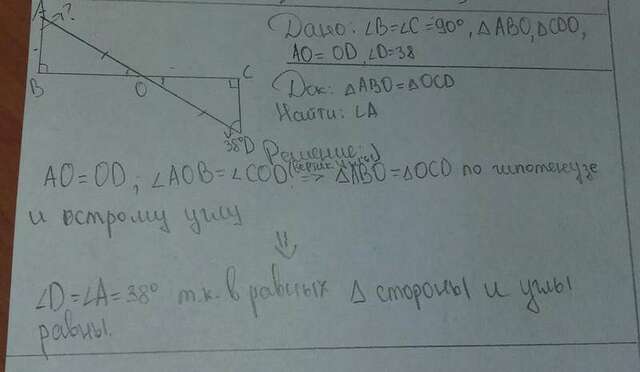 A α?
B
O
C
38° D
Дано: ∠B=∠C=90°, △ABO, △CDO,
AO=OD, ∠D=38
Док: △ABO=△OCD
Найти: ∠A
Решение:
AO=OD; ∠AOB=∠COD(вертик. углы) => △ABO=△OCD по гипотенузе
и острому углу
⇓
∠D=∠A=38° т.к. в равных △ стороны и углы
равны.